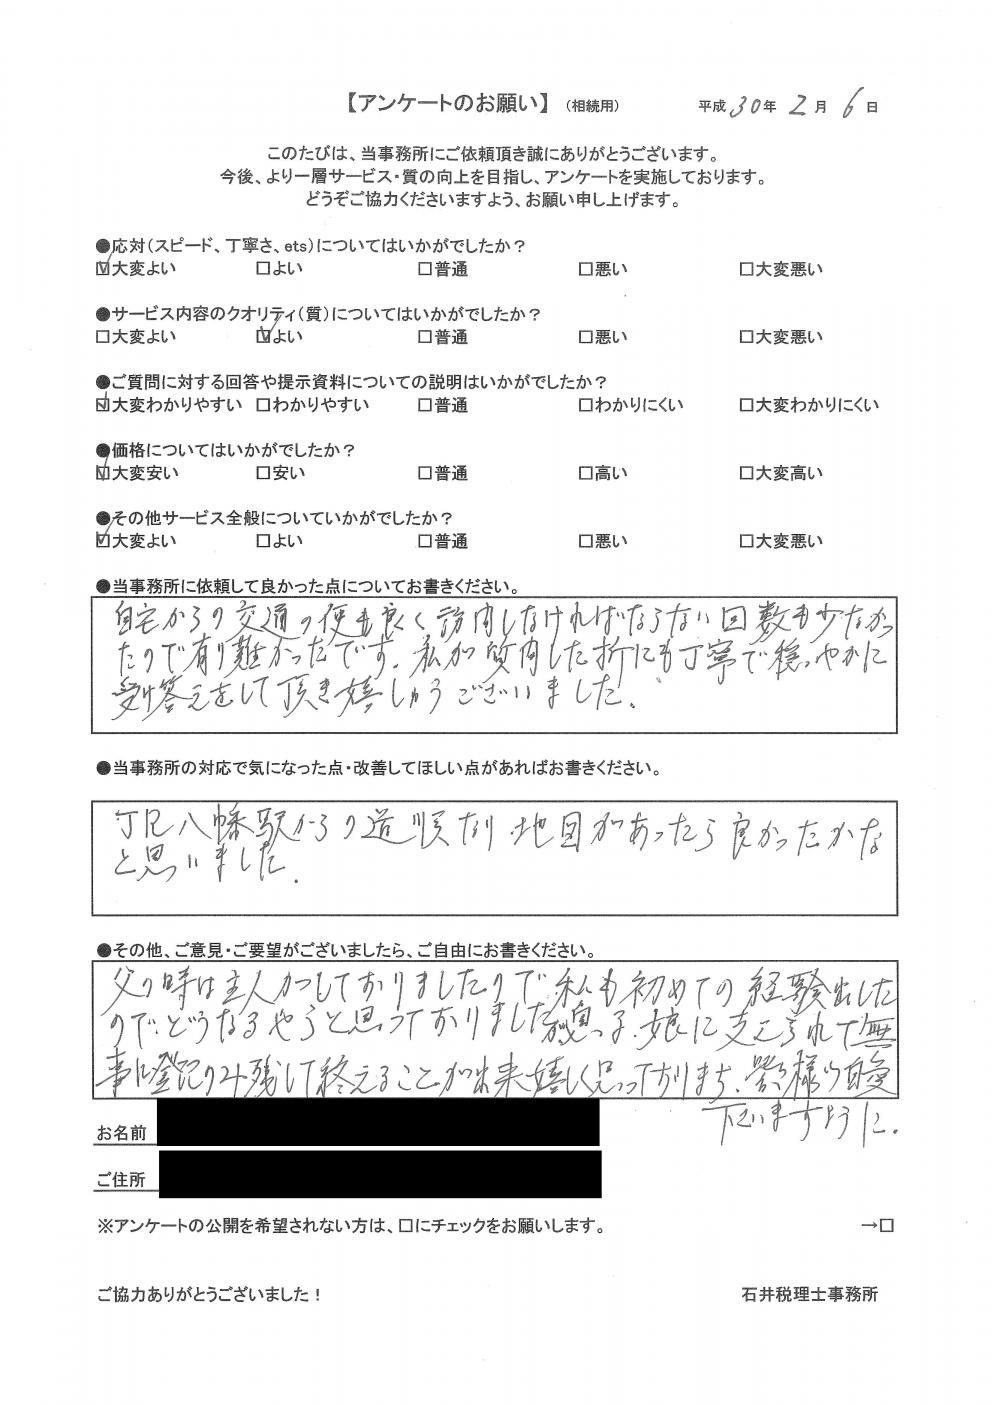 【アンケートのお願い】 (相続用) 平成 30 年 2 月 6 日
このたびは、当事務所にご依頼頂き誠にありがとうございます。
今後、より一層サービス・質の向上を目指し、アンケートを実施しております。
どうぞご協力くださいますよう、お願い申し上げます。
●応対(スピード、丁寧さ、ets)についてはいかがでしたか?
☑大変よい □よい □普通 □悪い □大変悪い
●サービス内容のクオリティ(質)についてはいかがでしたか?
□大変よい ☑よい □普通 □悪い □大変悪い
●ご質問に対する回答や提示資料についての説明はいかがでしたか?
☑大変わかりやすい □わかりやすい □普通 □わかりにくい □大変わかりにくい
●価格についてはいかがでしたか?
☑大変安い □安い □普通 □高い □大変高い
●その他サービス全般についていかがでしたか?
☑大変よい □よい □普通 □悪い □大変悪い
●当事務所に依頼して良かった点についてお書きください。
自宅からの交通の便も良く訪問しなければならない回数も少なかっ
たので有り難かったです。私が質問した折にも丁寧で穏やかに
受け答えをして頂き嬉しゅうございました.
●当事務所の対応で気になった点・改善してほしい点があればお書きください。
JR八幡駅からの道順なり地図があったら良かったかな
と思いました.
●その他、ご意見・ご要望がございましたら、ご自由にお書きください。
父の時は主人がしておりましたので私も初めての経験でした
のでどうなるやらと思っておりました 娘に支えられて無
事に登記のみ残して終えることが出来嬉しく思っております. 皆々様ご自愛
下さいますように.
お名前
ご住所
※アンケートの公開を希望されない方は、□にチェックをお願いします。 →□
ご協力ありがとうございました! 石井税理士事務所